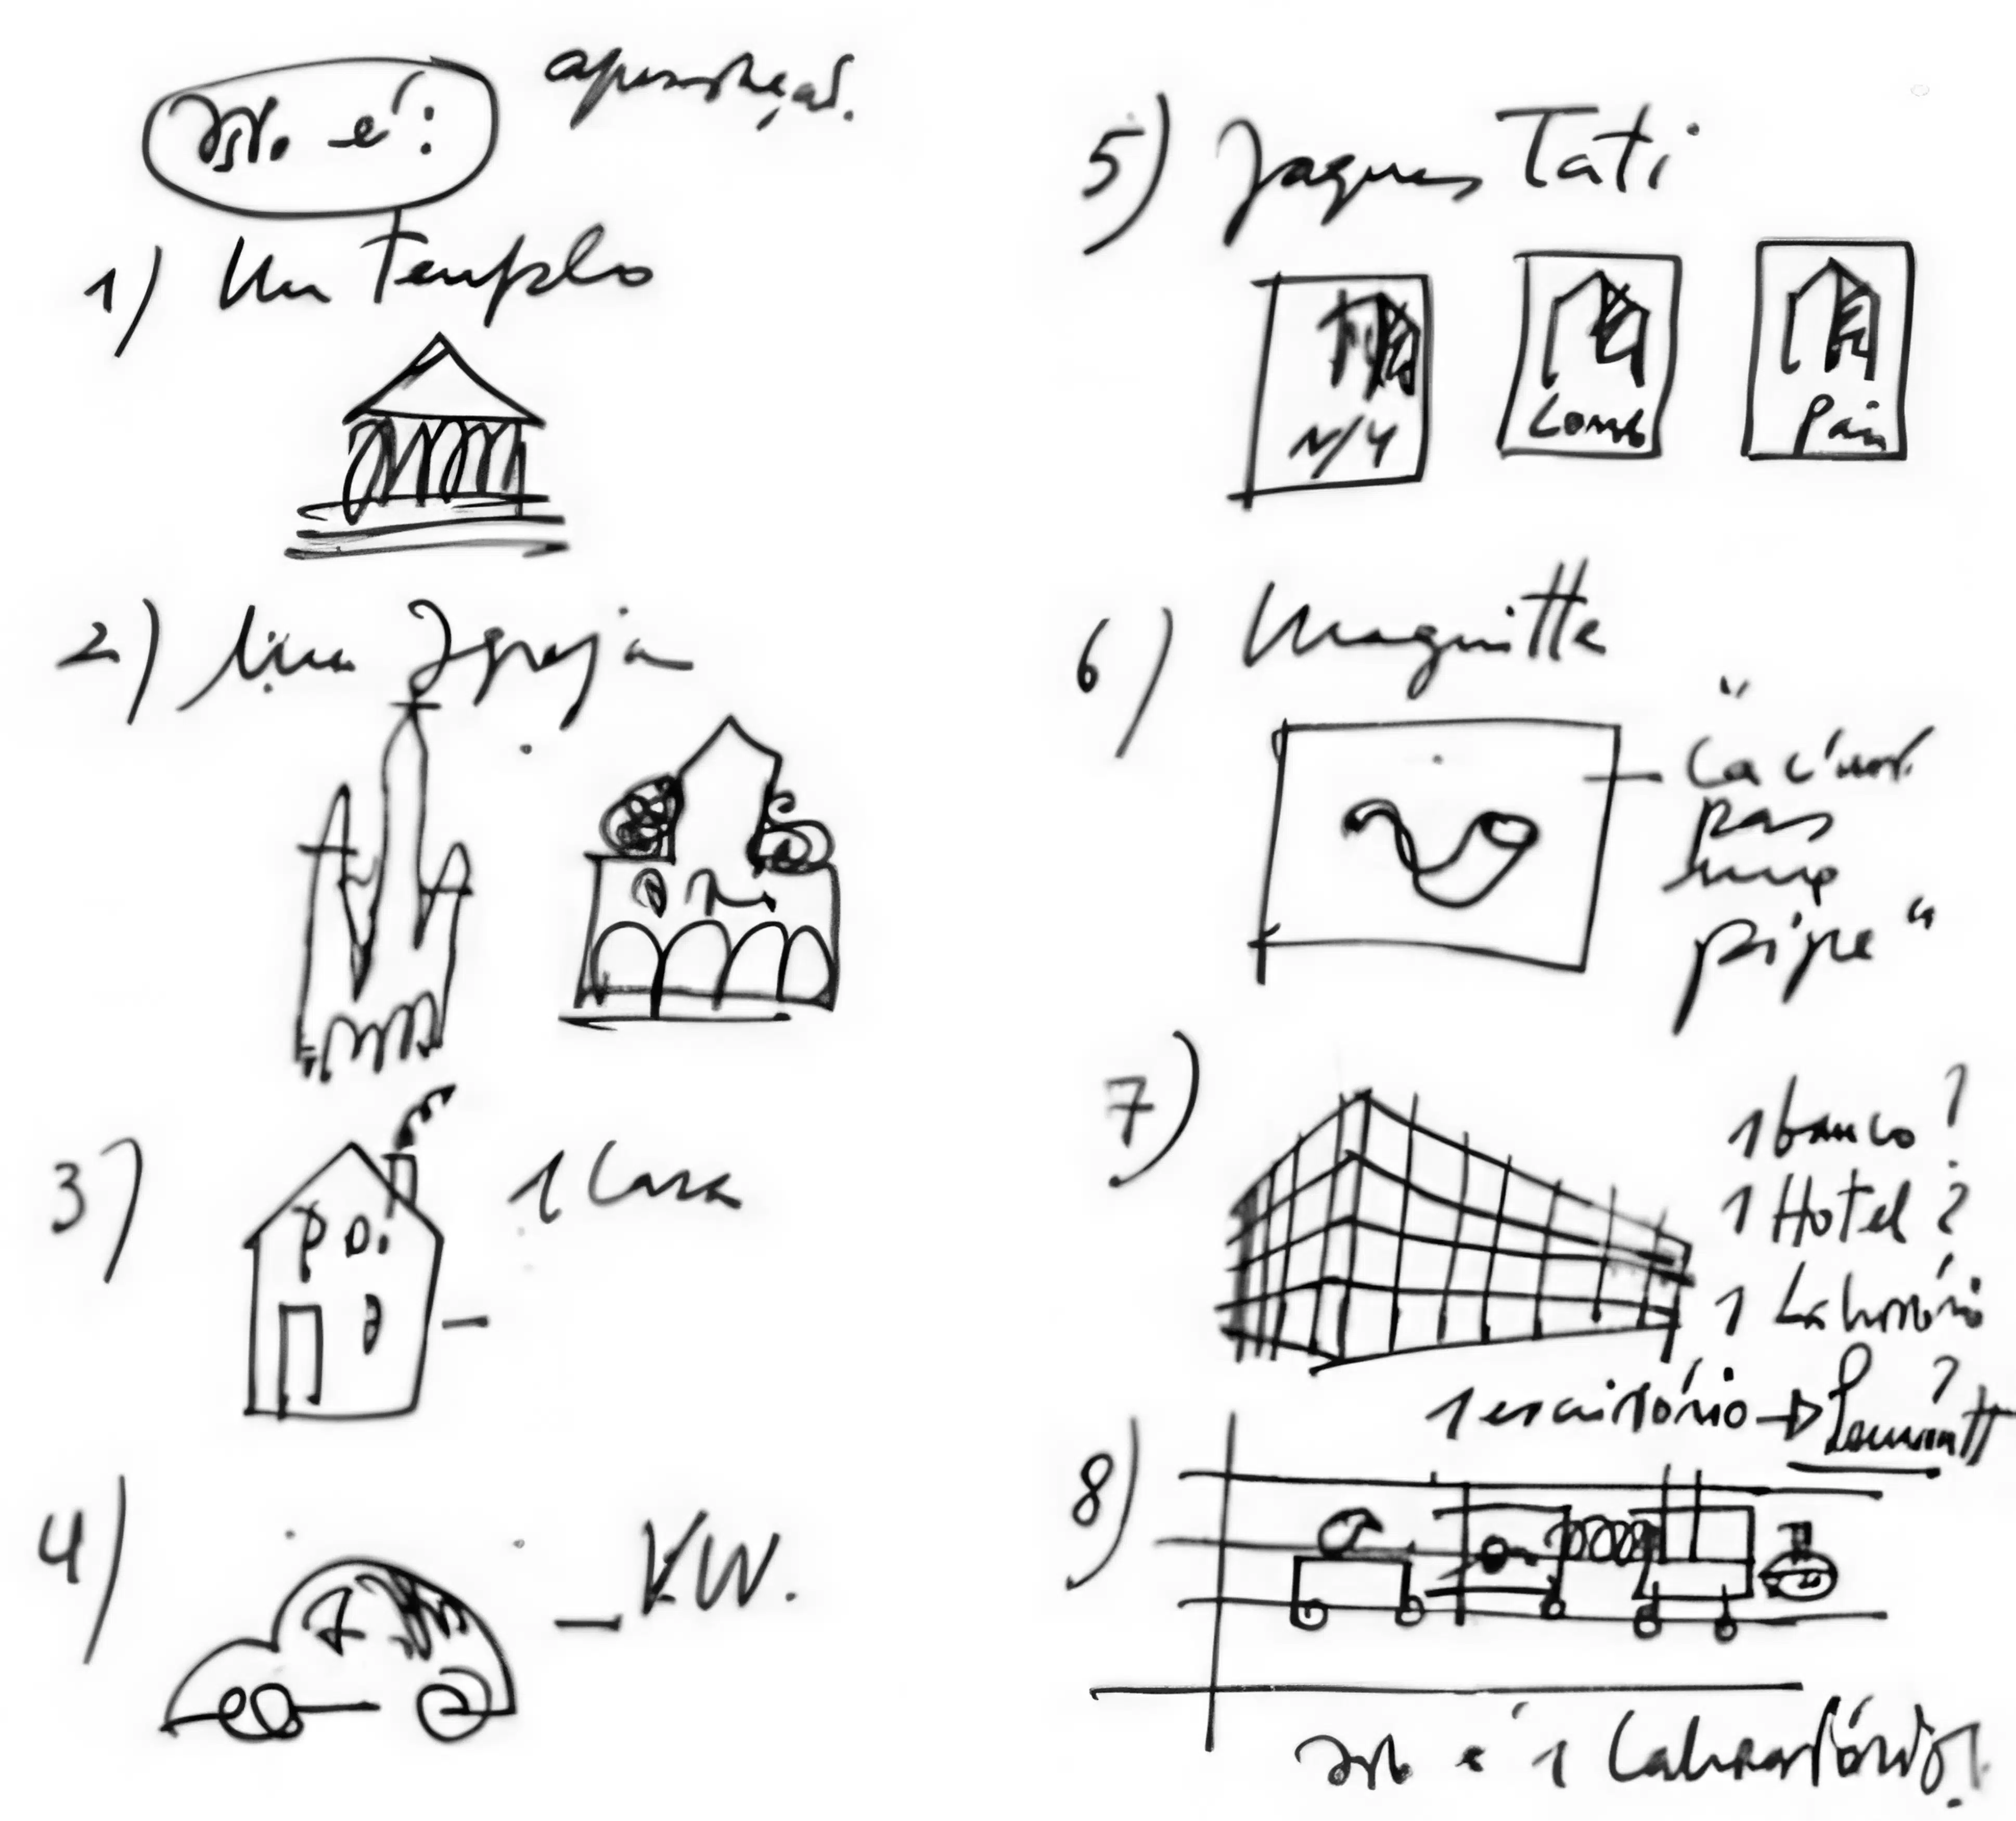 Isto é:
1) Um Templo
2) Uma Igreja
3) 1 Casa
4) V.W.
5) Jaques Tati
N/Y
Lond
Paris
6) Magritte
"Ça c'est
pas
une
pipe"
7)
1 banco?
1 Hotel?
1 Laboratório
?
1 escritório →
8)
Isto é 1 Laboratório!